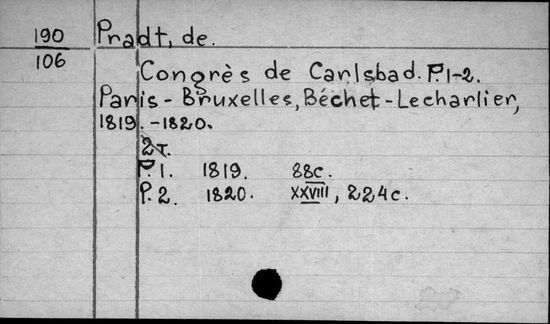 190
106
Pradt, de.
Congrès de Carlsbad. P.1-2.
Paris - Bruxelles, Béchet - Lecharlier,
1819. - 1820.
2т.
P.1. 1819. 88c.
P.2. 1820. XXVIII, 224c.